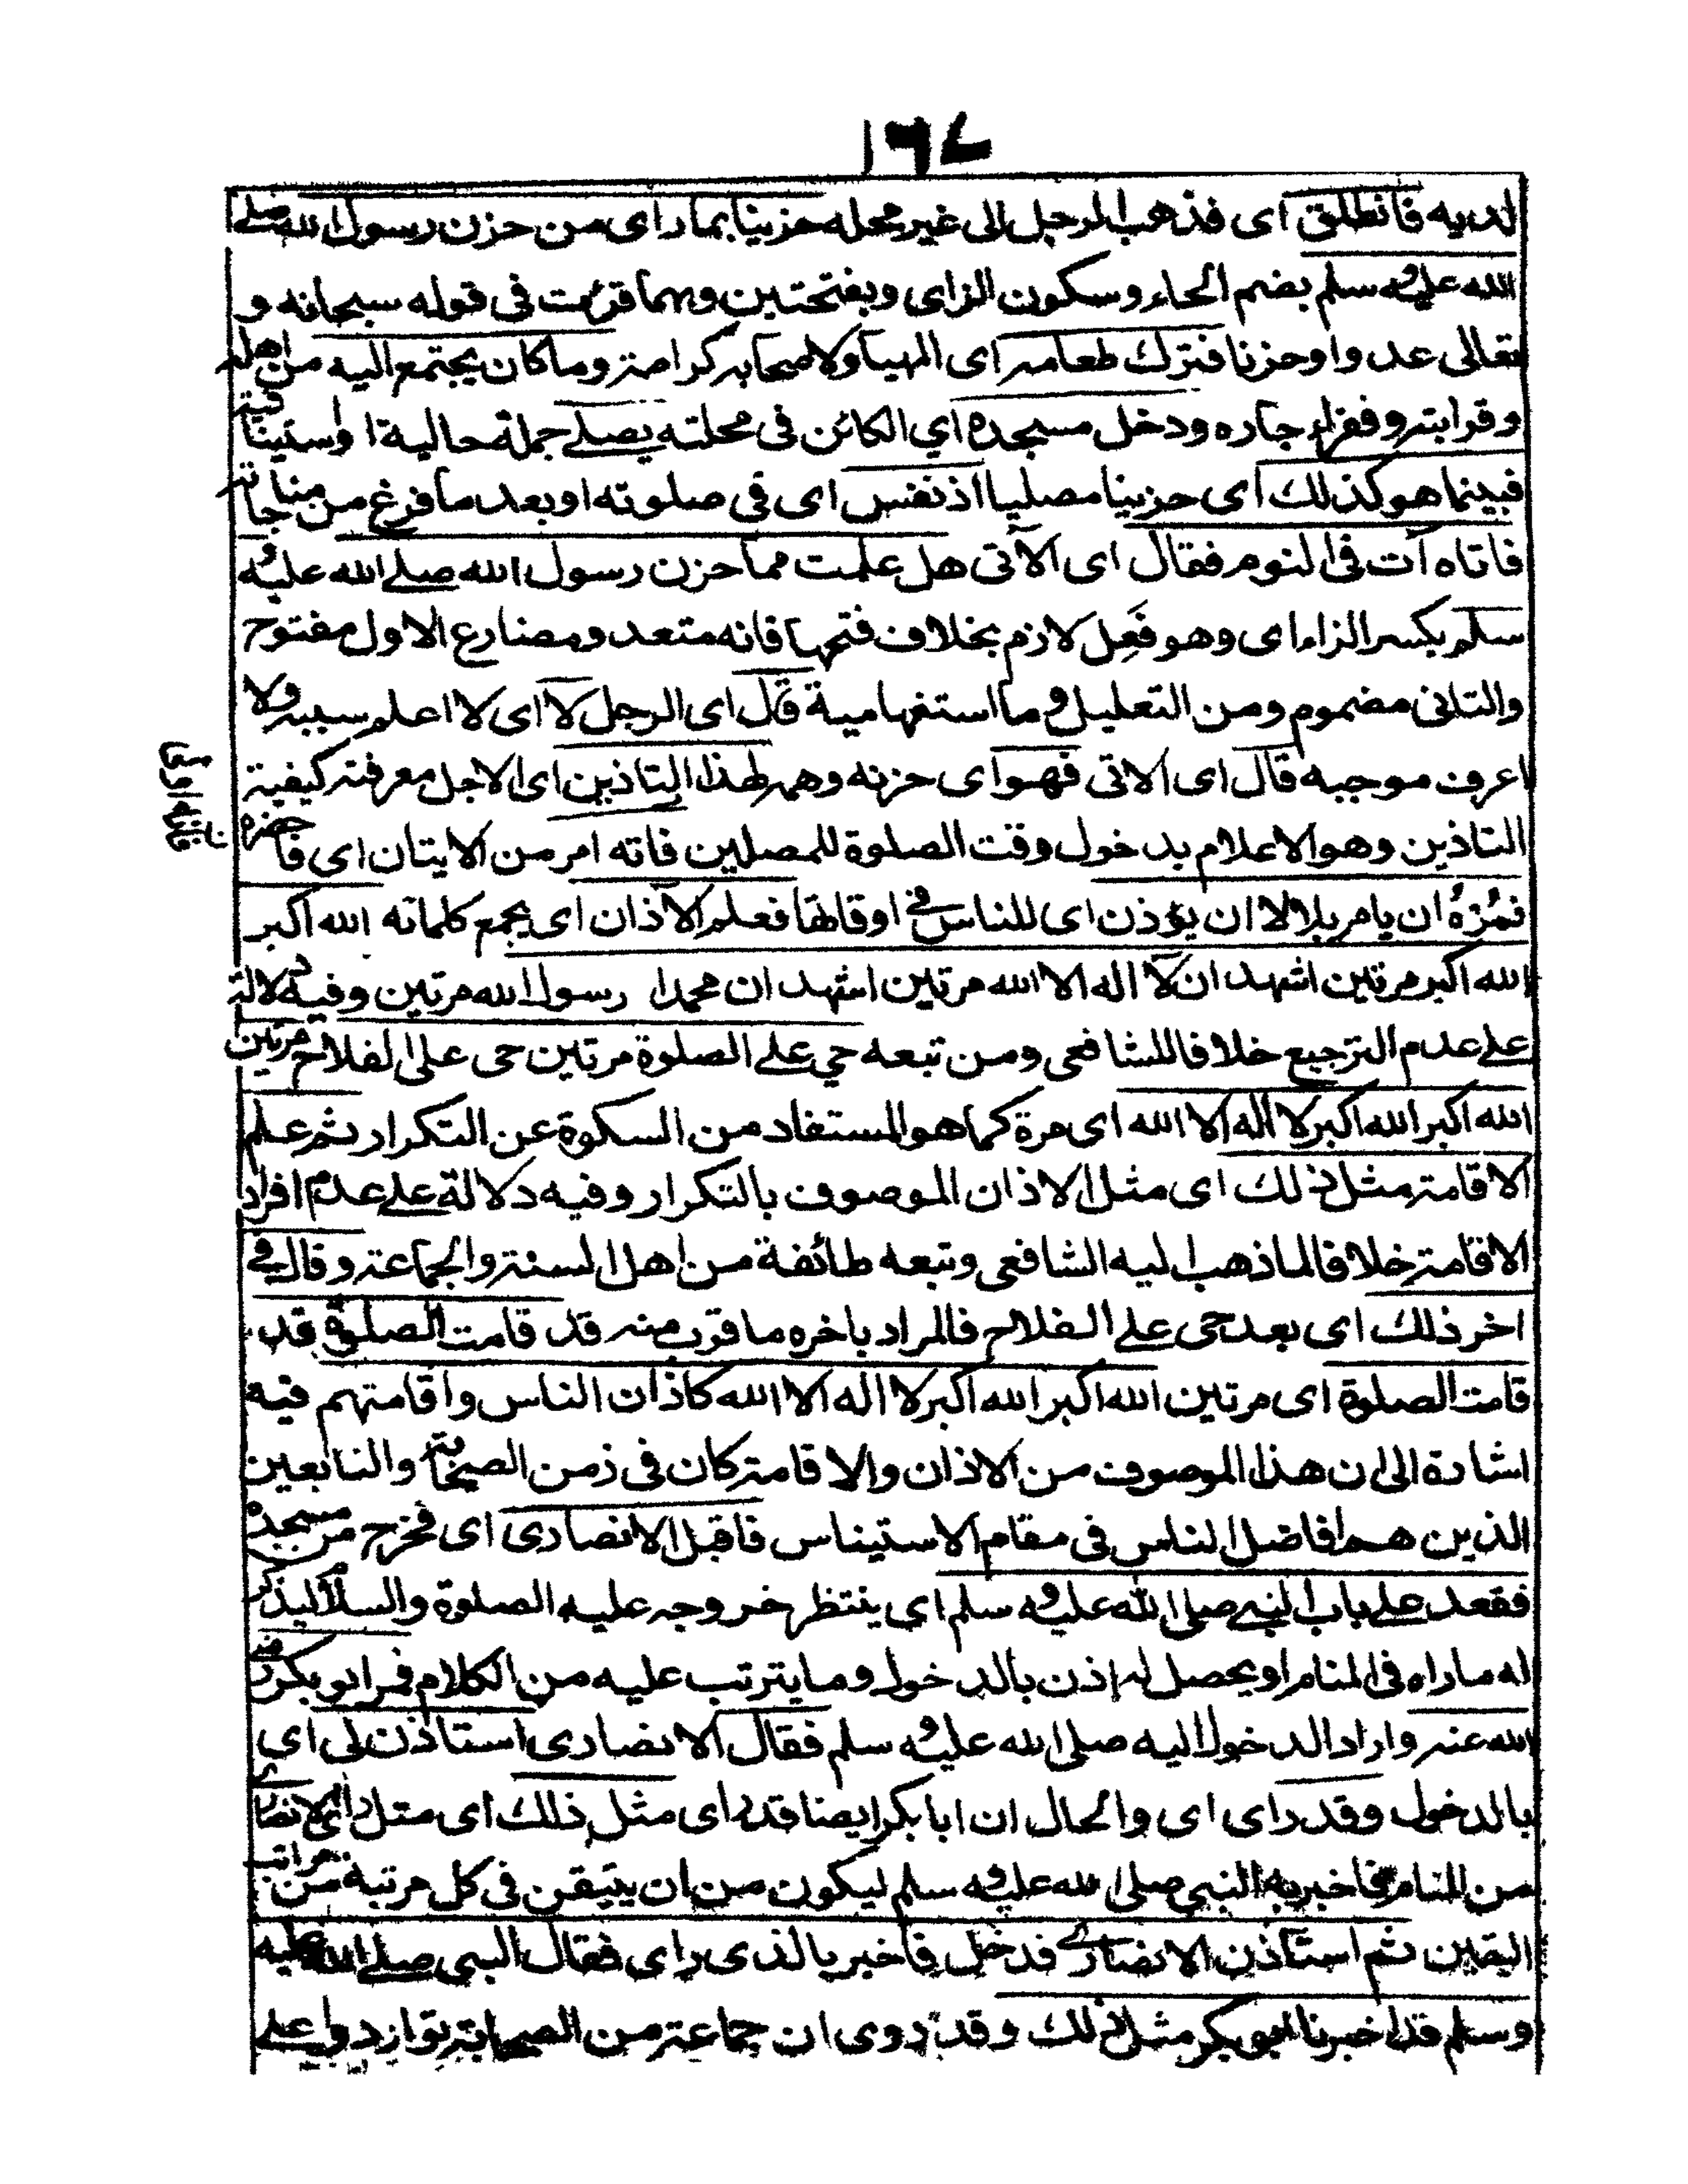 ١٦٧
لديه فانطلق اى فذهب الرجل الى غير محله حزينا بما راى من حزن رسول الله صلے
الله عليه وسلم بضم الحاء وسكون الزاى وبفتحتين وبهما قرئت فى قوله سبحانه و
تعالى عدوا وحزنا فترك طعامه اى المهيأ ولاصحابه كرامة وما كان يجتمع اليه من اهله
وقرابته وفقراء جاره ودخل مسجده اي الكائن فى محلته يصلے جملة حالية او استينافية
فبينما هو كذلك اى حزينا مصليا اذ نفس اى فى صلوته او بعد ما فرغ من مناجاته
فاتاه آت فى النوم فقال اى الآتى هل علمت مما حزن رسول الله صلے الله عليه و
سلم بكسر الزاء اى وهو فَعِل لازم بخلاف فتحها فانه متعد ومضارع الاول مفتوح
والثانى مضموم ومن التعليل وما استفهامية قال اى الرجل لا اى لا اعلم سببه ولا
اعرف موجبه قال اى الاتى فهو اى حزنه وهمه لهذا التاذين اى لاجل معرفته كيفية
التاذين وهو الاعلام بدخول وقت الصلوة للمصلين فاته امر من الايتان اى فا حضره
فمُرْهُ ان يامر بلالا ان يؤذن اى للناس فے اوقاتها فعلم الآذان اى بجمع كلماته الله اكبر
الله اكبر مرتين اشهد ان لا اله الا الله مرتين اشهد ان محمدا رسول الله مرتين وفيه دلالة
علے عدم الترجيع خلافا للشافعى ومن تبعه حي علے الصلوة مرتين حى على الفلاح مرتين
الله اكبر الله اكبر لا اله الا الله اى مرة كما هو المستفاد من السكوة عن التكرار ثم علم
الاقامة مثل ذلك اى مثل الاذان الموصوف بالتكرار وفيه دلالة علے عدم افراد
الاقامة خلافا لما ذهب اليه الشافعى وتبعه طائفة من اهل السنة والجماعة وقال فے
اخر ذلك اى بعد حى علے الفلاح فالمراد باخره ما قرب منه قد قامت الصلوة قد
قامت الصلوة اى مرتين الله اكبر الله اكبر لا اله الا الله كاذان الناس واقامتهم فيه
اشارة الى ان هذا الموصوف من الاذان والاقامة كان فى زمن الصحابة والتابعين
الذين هم افاضل الناس فى مقام الاستيناس فاقبل الانصارى اى فخرج من مسجده
فقعد علے باب النبے صلى الله عليه و سلم اى ينتظر خروجه عليه الصلوة والسلام ليذكر
له ما راه فى المنام او يحصل له اذن بالدخول وما يترتب عليه من الكلام فمر ابو بكر رضے
الله عنه واراد الدخول اليه صلى الله عليه و سلم فقال الانصارى استاذن لى اى
بالدخول وقد راى اى والحال ان ابا بكر ايضا قد راى مثل ذلك اى مثل رائى الانصارى
من المنام فاخبر به النبي صلى الله عليه و سلم ليكون من ان يتيقن فى كل مرتبة من مراتب
اليقين ثم استاذن الانصارے فدخل فاخبر بالذى راى فقال النبى صلے الله عليه
وسلم قد اخبرنا ابو بكر مثل ذلك وقد روى ان جماعة من الصحابة تواردوا علے